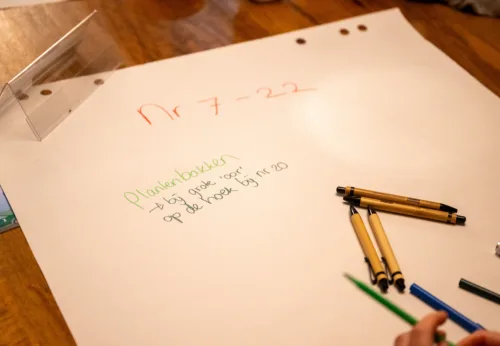 Nr 7-22
Plantenbakken
→ bij grote 'oor'
op de hoek bij nr 20